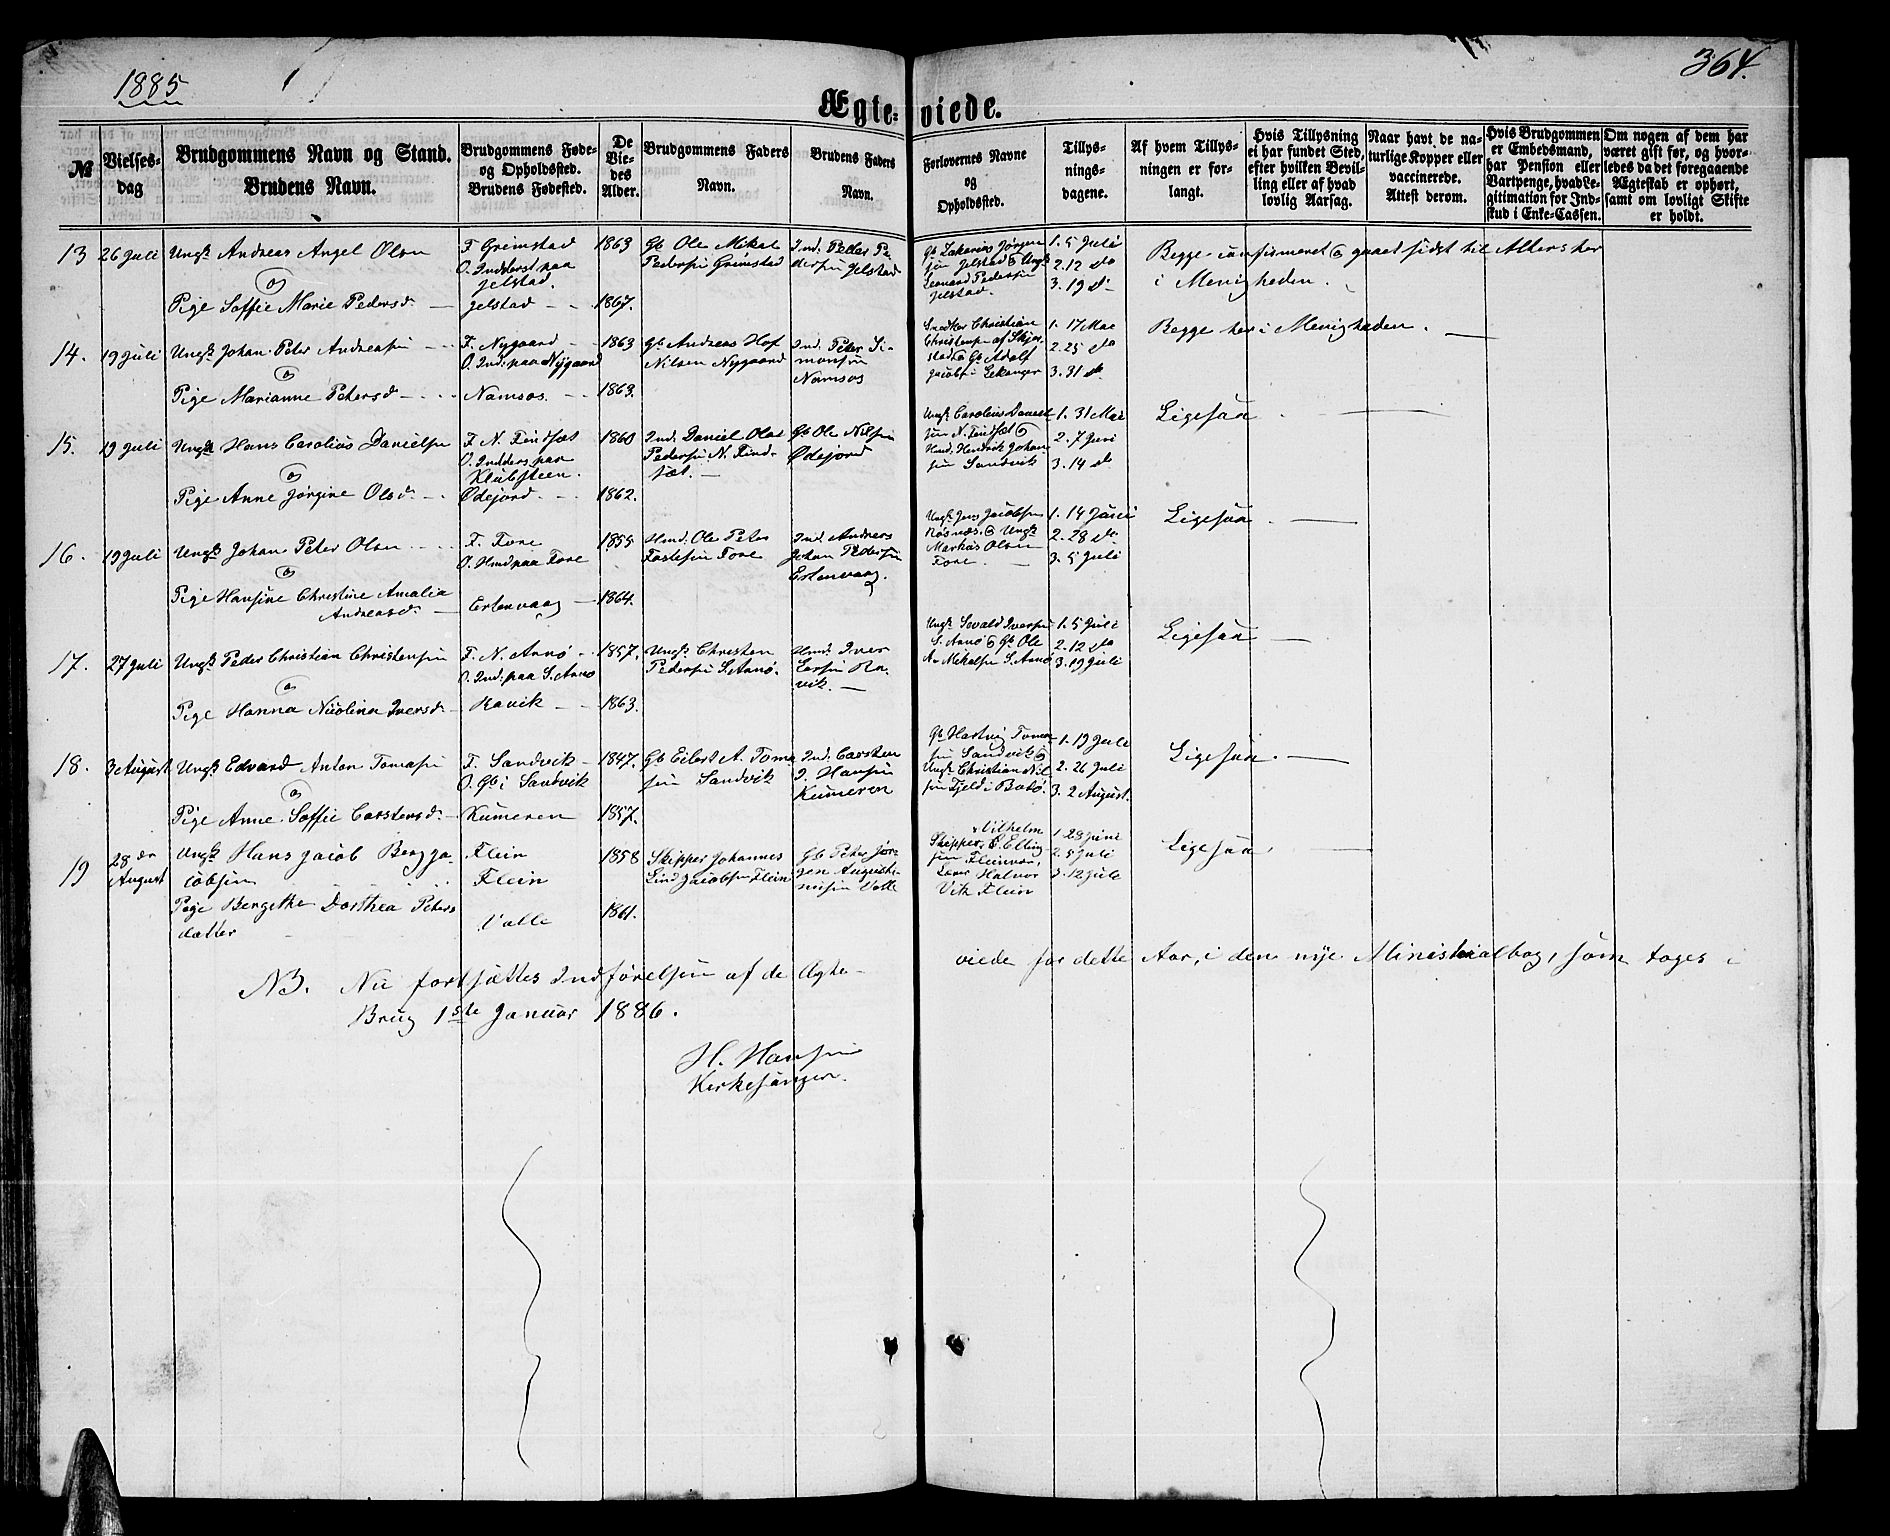 1885
364.
Ægte- viede.
№
Vielses-
dag
Brudgommens Navn og Stand.
Brudens Navn.
Brudgommens Føde-
og Opholdssted.
Brudens Fødested.
De
Vie-
des
Alder.
Brudgommens Faders
Navn.
Brudens Faders
Navn.
Forlovernes Navne
og
Opholdssted.
Tillys-
nings-
dagene.
Af hvem Tillys-
ningen er for-
langt.
Hvis Tillysning
ei har fundet Sted,
efter hvilken Bevil-
ling eller af hvad
lovlig Aarsag.
Naar havt de na-
turlige Kopper eller
vaccinerede.
Attest derom.
Hvis Brudgommen
er Embedsmand,
har Pension eller
Vartpenge, hvad Le-
gitimation for Ind-
skud i Enke-Cassen.
Om nogen af dem har
været gift før, og hvor-
ledes da det foregaaende
Ægteskab er ophørt,
samt om lovligt Skifte
er holdt.
13
26 Juli
Ungk Andreas Angel Olsen
og
Pige Soffie Marie Pedersd. —
F. Grimstad
O. Indderst paa
Jelstad.
Jelstad - -
1863
1867.
Gb Ole Mikal
Pedersen Grimstad
Ind. Peder Pe-
dersen Jelstad
Gb Zakarias Jørgen
sen Jelstad & Ungk
Leonard Pedersen
Jelstad.
1. 5 Juli
2. 12 do
3. 19 d.
Begge confirmeret & gaaet sidst til Alters her
i Menigheden.
14.
19 Juli
Ungk Johan Peter Andreasen
og
Pige Marianne Petersd -
F. Nygaard - -
O. Ind: paa Nygaard
Namsos. - -
1863
1863.
Gb Andreas Hof
Nilsen Nygaard
Ind. Peter Si-
monsen
Namsos
Snedker Christian
Christensen af Skjer-
stad & Gb Adolf
Jacobs i Lekanger
1. 17 Mai
2. 25 do
3. 31 d.
Begge her i Menigheden. —
15.
19 Juli
Ungk Hans Carolius Danielsen
og
Pige Anne Jørgine Olsd. -
F. N. Findset
O. Indders paa
Klubsteen.
Ødejord. - -
1860
1862.
Ind. Daniel Olai
Pedersen N. Find-
sæt. —
Gb Ole Nilsen
Ødejord
Ungk Carolius Daniel
sen N. Findset &
Hmd. Hendrik Johan
sen Sandvik
1. 31 Mai
2. 7 Juni
3. 14 d.
Ligesaa
16.
19 Juli
Ungk Johan Peter Olsen
og
Pige Hansine Christine Amalia
Andreasd. —
F. Fore
O. Hmd paa Fore
Ertenvaag —
1855
1864.
Hmd. Ole Peter
Fore
Ind. Andreas
Johan Pedersen
Ertenvaag.
Ungk Jens Jacobsen
Røsnæs. & Ungk
Markus Olsen
Fore. —
1. 14 Juni
2. 28 do
3. 5 Juli
Ligesaa. —
17.
27 Juli
Ungk Peder Christian Christensen
og
Pige Hanna Nicolina Iversd. -
F. N. Arnø - -
O. Ind: paa S. Arnø
Ravik - -
1857.
1863.
Ungk Christen
Pedersen S. Arnø.
Hmd. Iver
Larsen Ra-
vik. —
Ungk Sevald Iversen
S. Arnø & Gb Ole
A. Mekalsen S. Arnø
1. 5 Juli
2. 12 do
3. 19 Juli
Ligesaa —
18.
3 August
Ungk Edvard Anton Tomasen
og
Pige Anne Soffie Carstensd. -
F. Sandvik -
O. Gb i Sandvik
Kumeren
1847.
1857.
Gb Eilert A. Toma
sen Sandvik
Ind. Carsten
J. Hansen
Kumeren
Gb Hartvig Tomas
sen Sandvik &
Ungk Christian Nil
sen Fjeld i Bodø.
1. 19 Juli
2. 26 Juli
3. 2 August.
Ligesaa. —
19
28 de
August
Ungk Hans Jacob Berg Ja-
cobsen
Pige Bergethe Dorthea Peters
datter
Flein
Flein
Valle
1858
1861.
Skipper Johannes
Lind Jacobsen Flein
Gb Peter Jør-
gen Augusti-
nusen Valle
Vilhelm
Skipper E. Elling-
sen Fleinvær,
Lærer Halvor
Vik Flein
1. 28 Juni
2. 5 Juli
3. 12 Juli
Ligesaa. —
NB. Nu fortsættes Indførelsen af de Ægte- viede for dette Aar, i den nye Ministerialbog, som tages i
Brug 1ste Januar 1886.
H. Hansen
Kirkesanger.